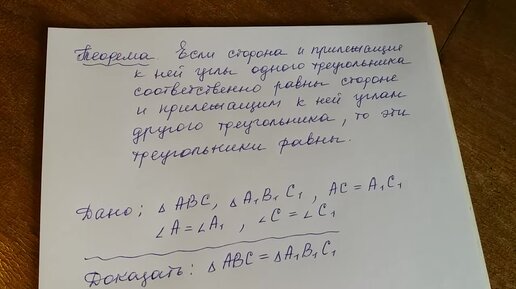 Теодема. Если сторона и прилежащие
к ней углы одного треугольника
соответственно равны стороне
и прилежащим к ней углам
другого треугольника, то эти
треугольники равны.
Дано: △ ABC, △ A₁B₁C₁, AC = A₁C₁
∠A = ∠A₁, ∠C = ∠C₁
Доказать: △ ABC = △ A₁B₁C₁